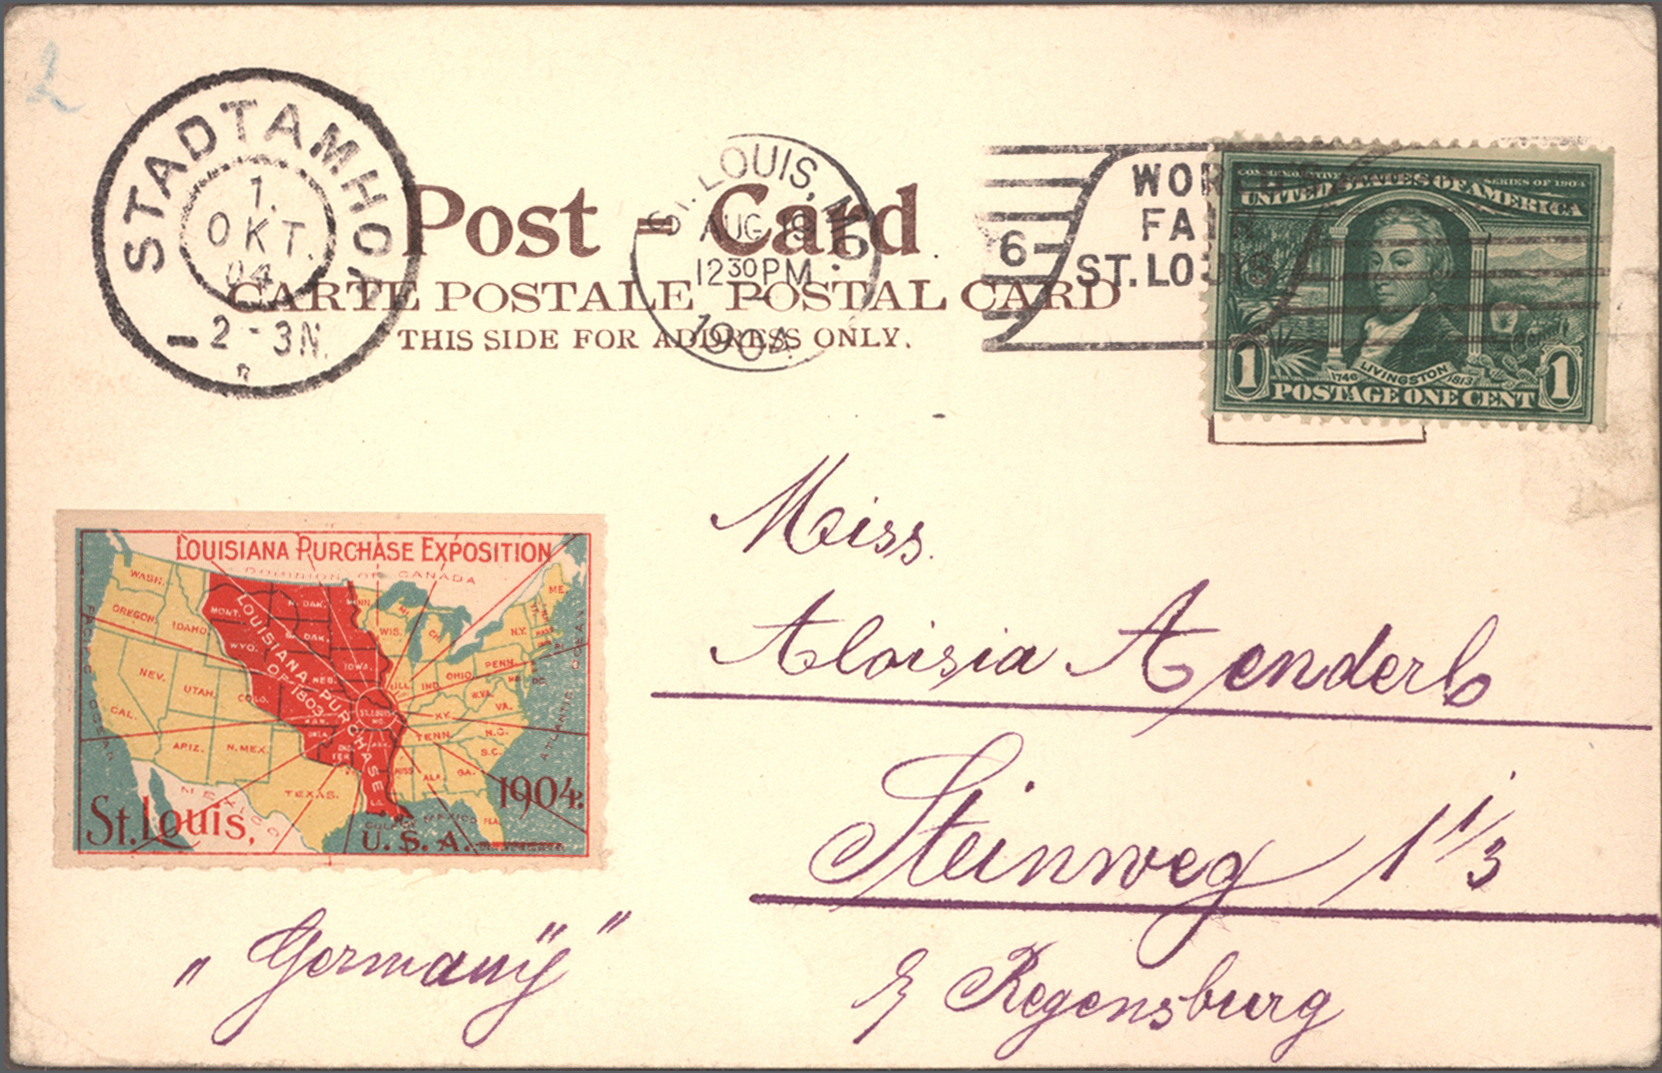 STADTAMHOF
1.
OKT.
04.
2-3N.
Post - Card
CARTE POSTALE POSTAL CARD
THIS SIDE FOR ADDRESS ONLY.
ST. LOUIS, MO.
AUG
12 30 PM
1904
6
WORLD'S
FAIR
ST. LOUIS
COMMEMORATIVE SERIES OF 1904
UNITED STATES OF AMERICA
1746 LIVINGSTON 1813
1 POSTAGE ONE CENT 1
LOUISIANA PURCHASE EXPOSITION
DOMINION OF CANADA
WASH. MONT. N. DAK. MINN. ME.
OREGON. IDAHO. S. DAK. WIS. N.Y.
WYO. IOWA. PENN.
NEV. UTAH. COLO. NEB. ILL. IND. OHIO. W.VA. VA.
LOUISIANA PURCHASE
OF 1803
ST. LOUIS MO.
CAL. ARIZ. N. MEX. OKLA. IND. TER. ARK. KY. TENN. N.C. S.C.
TEXAS. MISS. ALA. GA. FLA.
PACIFIC OCEAN
ATLANTIC OCEAN
MEXICO
GULF OF MEXICO
St. Louis, 1904.
U.S.A.
Meiss.
Aloisia Aenderl
Steinweg 1 1/3
„Germanÿ"
Regensburg